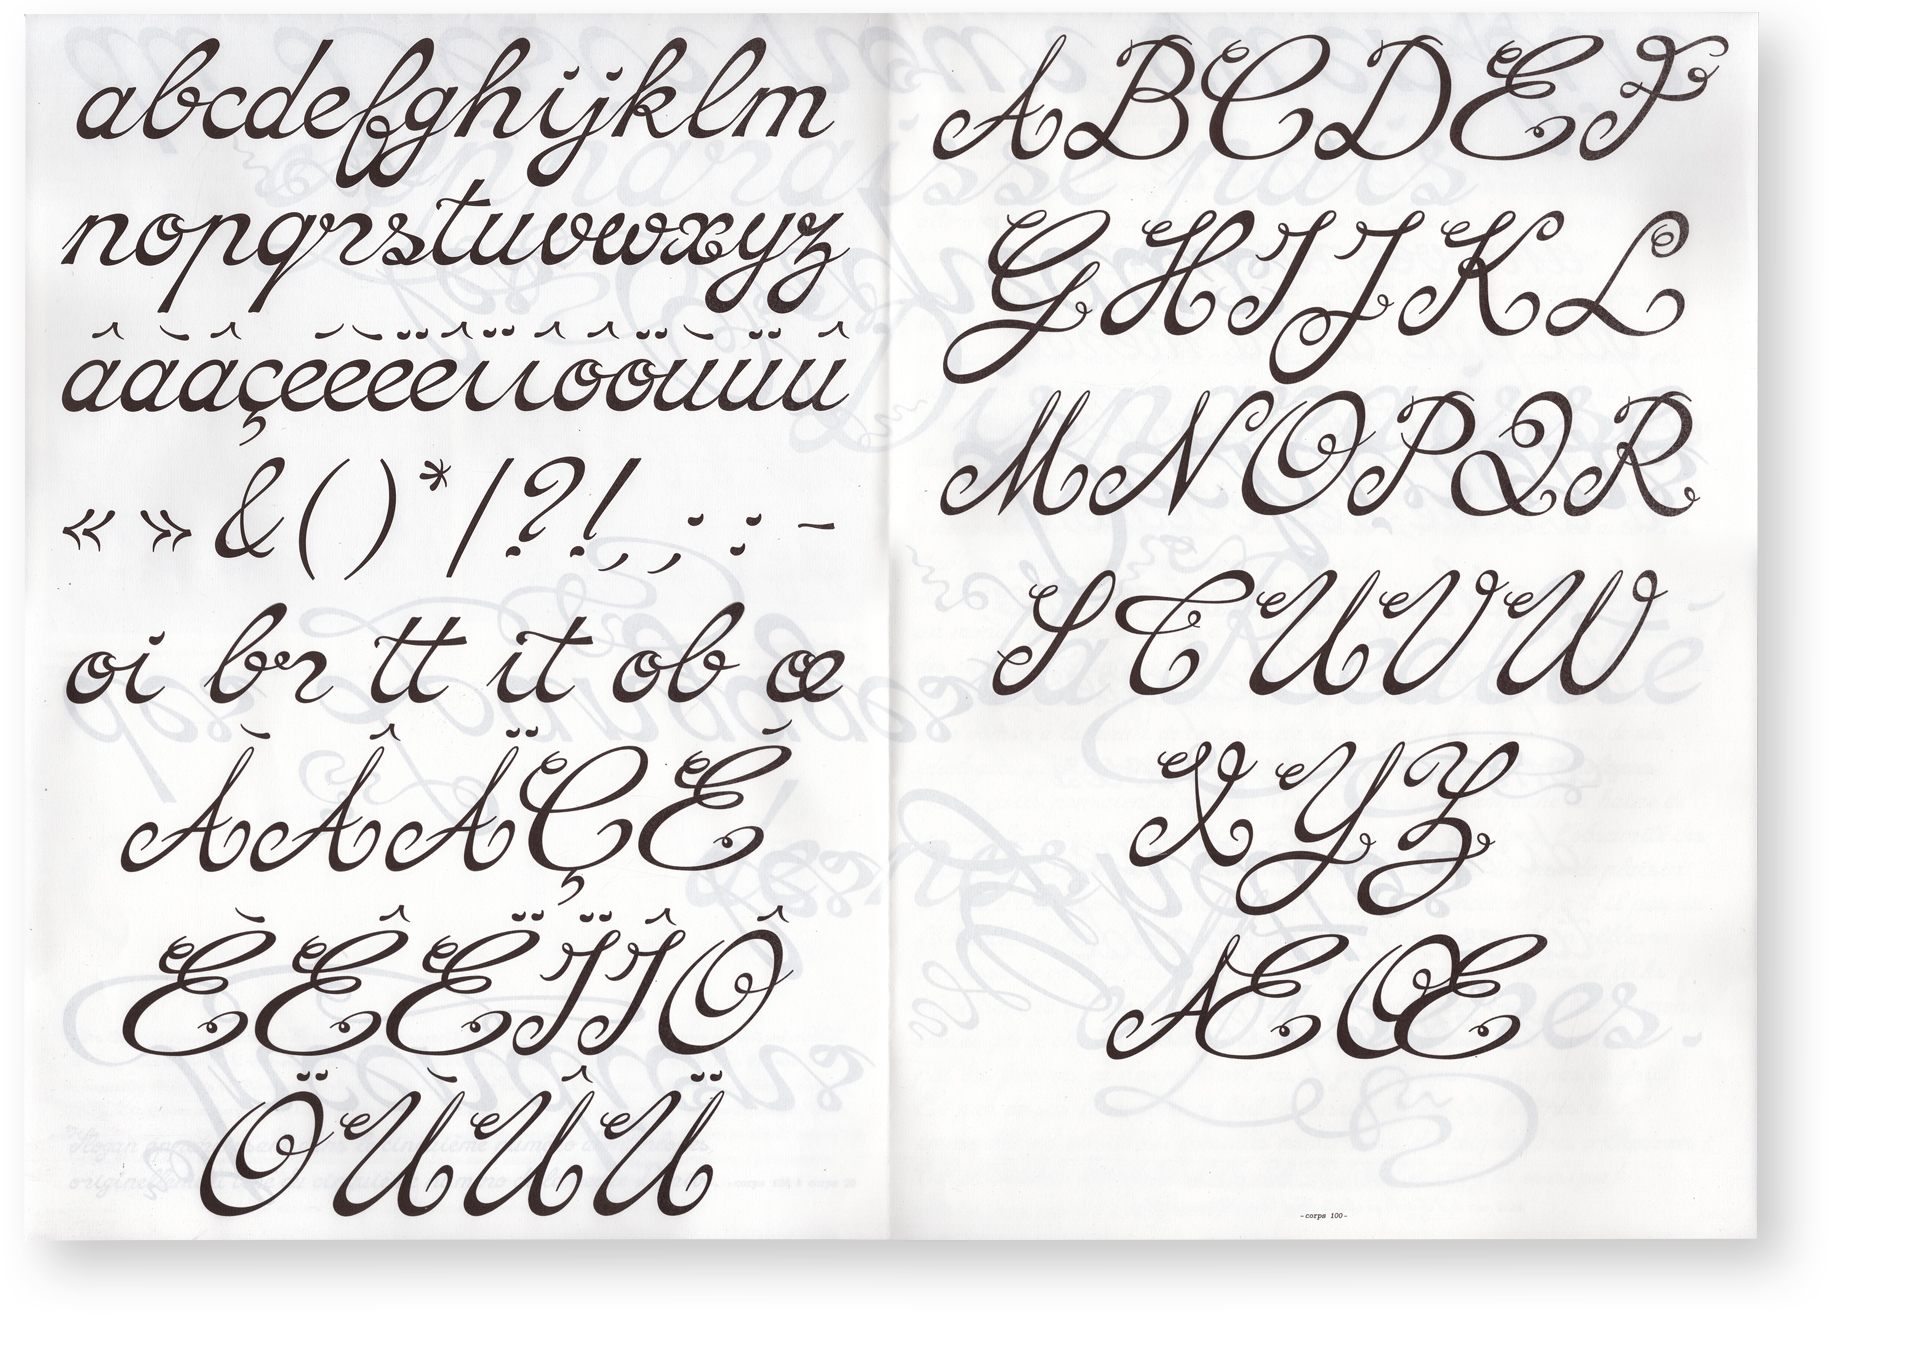 abcdefghijklm
nopqrstuvwxyz
âàâçéèëêïîôöùüû
« » & ( ) * / ? ! , ; : -
oi br tt it ob œ
ÀÂÄÇÉ
ÈÊËÏÎÔ
ÖÙÛÜ
ABCDEF
GHIJKL
MNOPQR
STUVW
XYZ
ÆŒ
-corps 100-